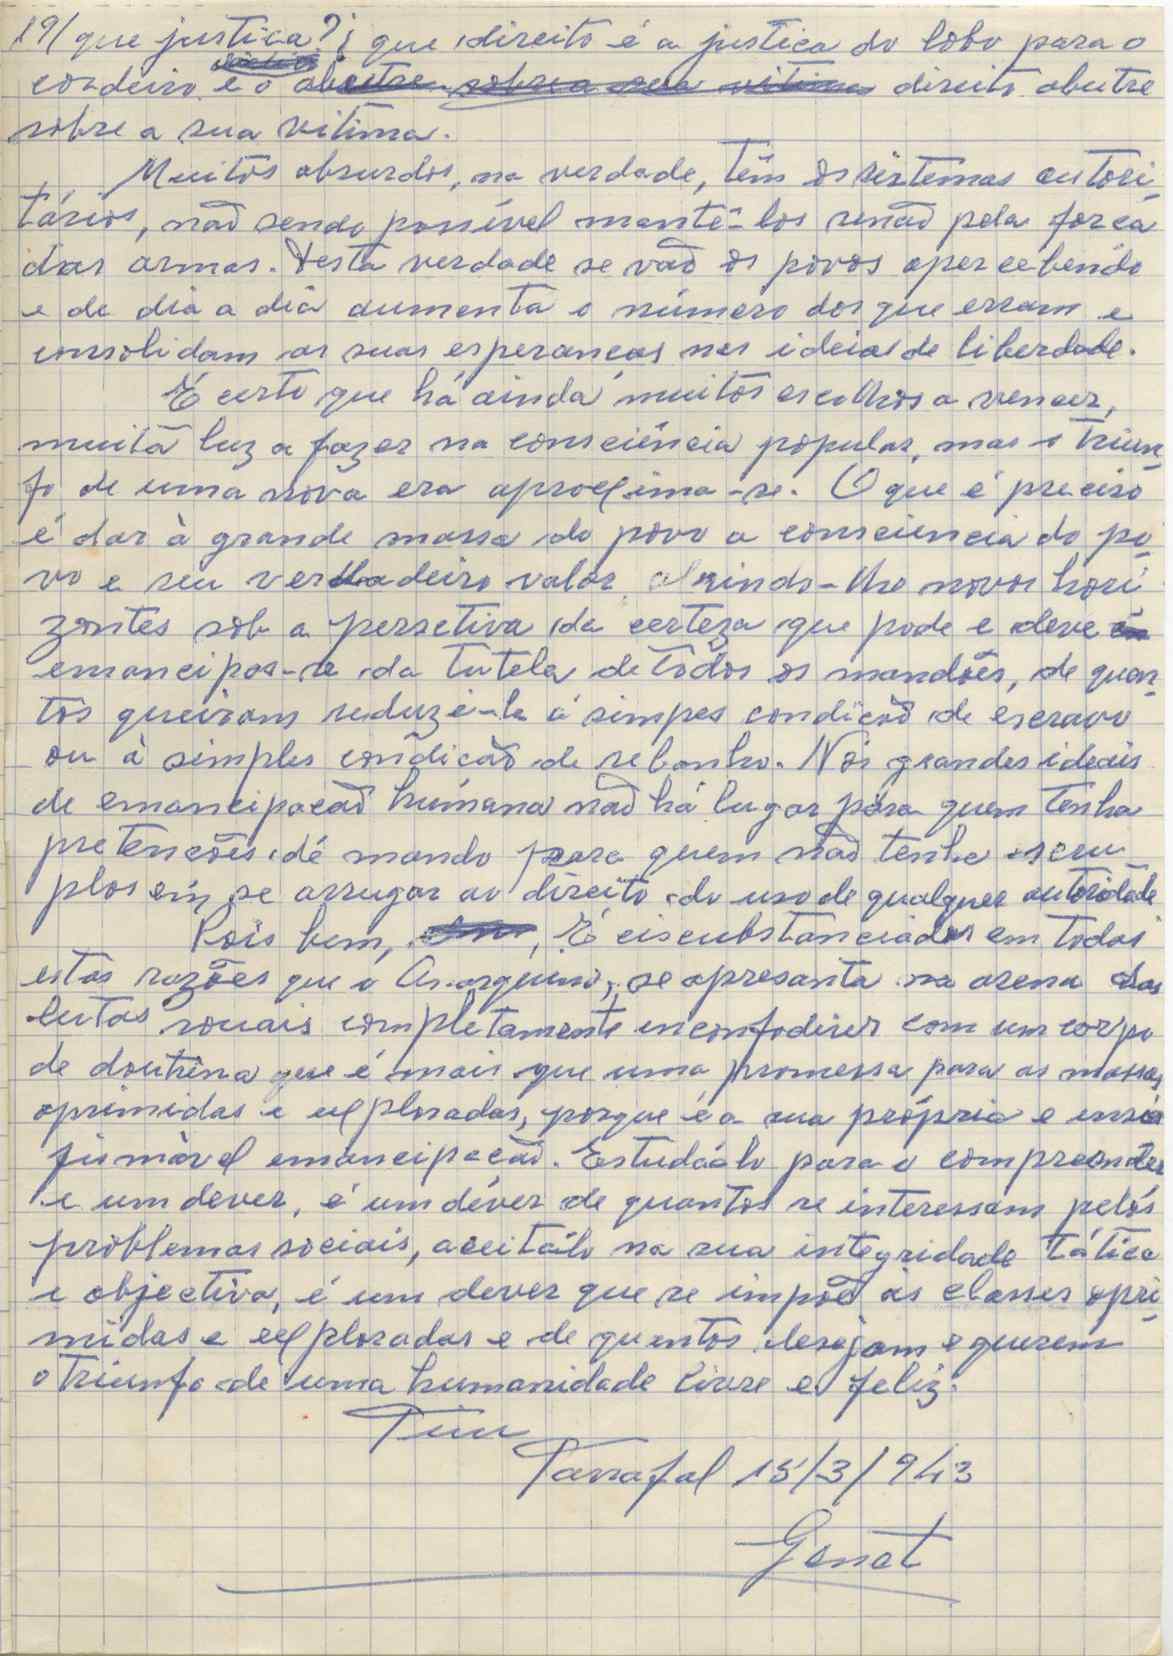 19/ que justiça?; que direito é a justiça do lobo para o
cordeiro e o direito abutre
sobre a sua vitima.
Muitos absurdos, na verdade, têm os sistemas autori-
tários, não sendo possível mantê-los senão pela força
das armas. Desta verdade se vão os povos apercebendo
e de dia a dia aumenta o número dos que erram e
consolidam as suas esperanças nas ideias de liberdade.
É certo que há ainda muitos escolhos a vencer,
muita luz a fazer na consciência popular, mas o triun-
fo de uma nova era aproxima-se. O que é preciso
é dar à grande massa do povo a consciencia do po-
vo e seu verdadeiro valor, abrindo-lhe novos hori
zontes sob a persetiva da certeza que pode e deve
emancipar-se da tutela de todos os mandões, de quan-
tos queiram reduzi-la à simpes condição de escravo
ou à simples condição de rebanho. Nos grandes ideais
de emancipação humana não há lugar para quem tenha
pretenções de mando para quem não tenha escru
plos em se arrugar ao direito do uso de qualquer autoridade
Pois bem, É circubstanciado em todas
estas razões que o Anarquismo, se apresanta na arena das
lutas sociais completamente com um corpo
de doutrina que é mais que uma promessa para as massas
oprimidas e exploradas, porque é a sua própria e
emancipação. Estudá-lo para o compreender
é um dever, é um dever de quantos se interessam pelos
problemas sociais, aceitá-lo na sua integridade tática
e objectiva, é um dever que se impoē às classes opri-
midas e exploradas e de quantos desejam e querem
o triunfo de uma humanidade livre e feliz.
Fim
Tarrafal 15/3/943